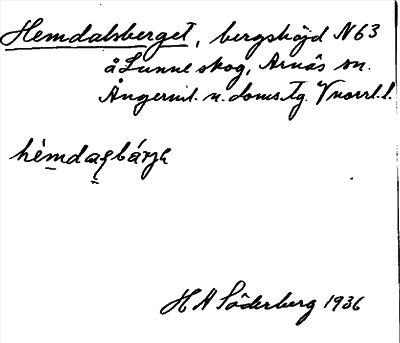 Hemdalsberget, bergshöjd N 63
å Lunne skog, Arnäs sn.
Ångerml. n. doms.tg. Vnorrl.l.
hèmdaɭbárʒe
H A Söderberg 1936